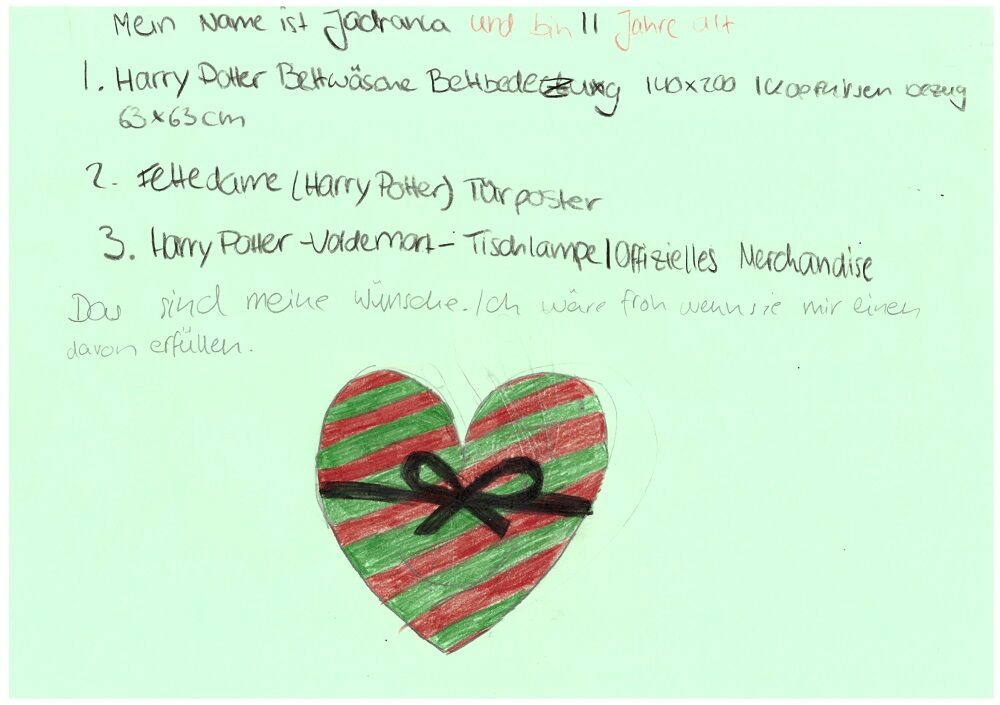 Mein Name ist Jadranca und bin 11 Jahre alt
1. Harry Potter Bettwäsche Bettbedezung 140x200 Kopfkissen bezug
63x63cm
2. Fette dame (Harry Potter) Türposter
3. Harry Potter -Voldemort- Tischlampe/Offizielles Merchandise
Das sind meine Wünsche. Ich wäre froh wenn sie mir einen
davon erfüllen.